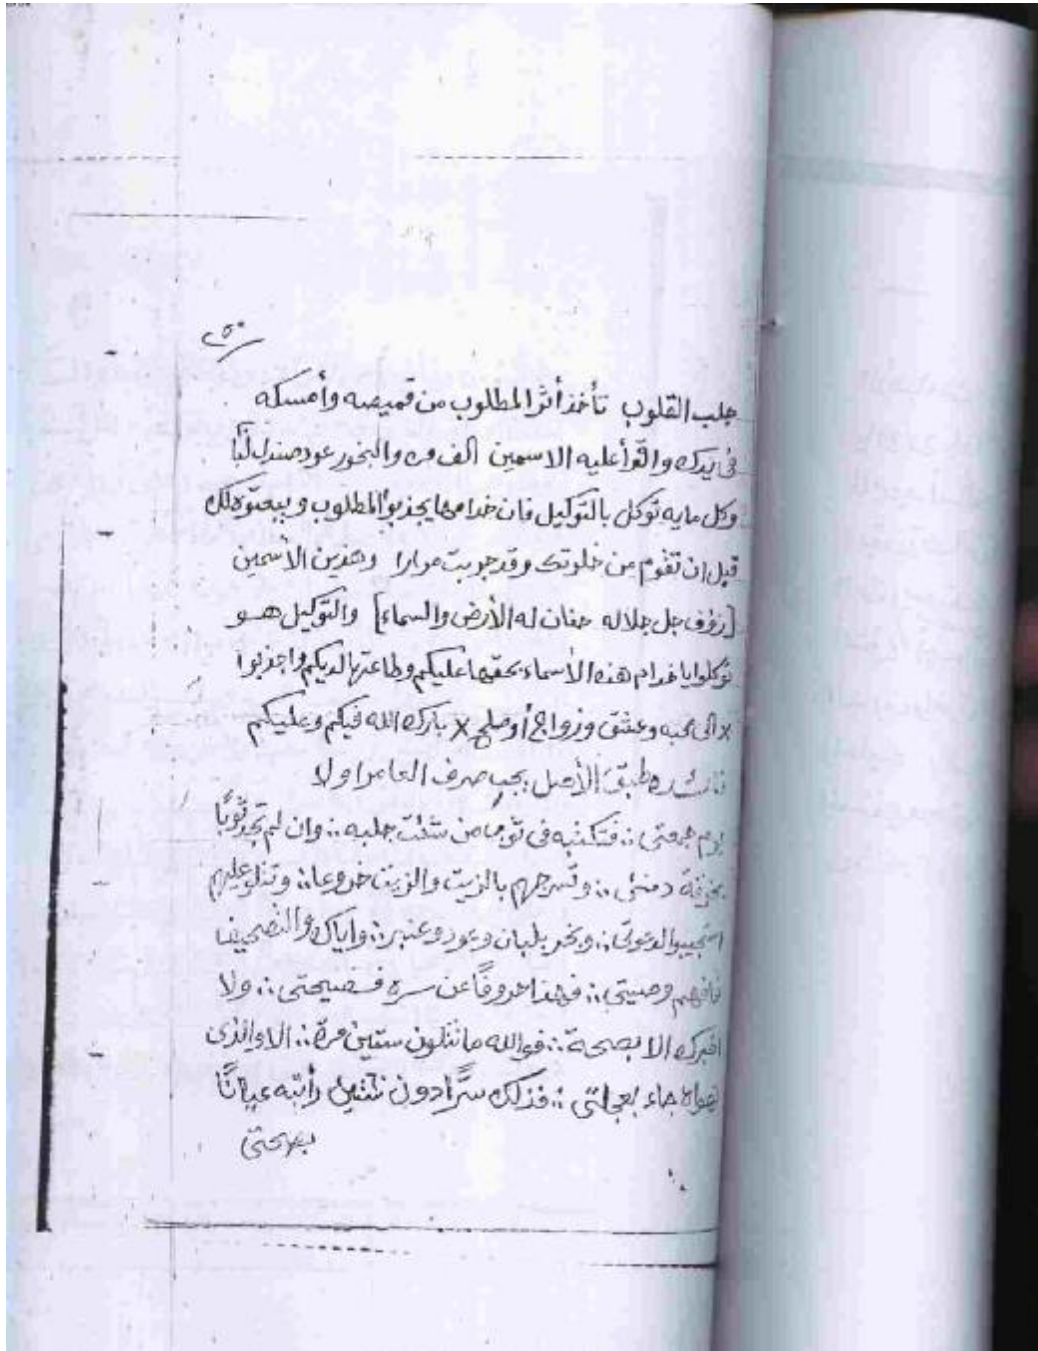 ٢٥٠
جلب القلوب تأخذ أثر المطلوب من قميصه وأمسكه
فى يدك واقرأ عليه الاسمين الف مره والبخور عود صندل لبًا
وكل مايه توكل بالتوكيل فان خدامها يجذبوا المطلوب ويبعتوه لك
قبل ان تقوم من خلوتك وقد جربت مرارا وهذين الأسمين
[زؤف جل جلاله حفان له الأرض والسماء] والتوكيل هــو
توكلوا يا خدام هذه الأسماء بحقها عليكم وطاعتها لديكم واجذبوا
x الى محبه وعشق وزواج أو صلح x بارك الله فيكم وعليكم
طبق الأصل يجب صرف العامر اولا
يوم جمعتى :: فتكتبه فى ثوب من شئت جلبه :: وان لم تجد ثوبًا
بخرقة :: وتسرجهم بالزيت والزيت خروعا :: وتتلو عليهم
استجيبوا لدعوتى :: وبخر بلبان وعود وعنبر :: واياك والتصحيف
فافهم وصيتى :: فهذا حروفًا عن سره فــضيحتى :: ولا
اخبرك الا بصحة :: فوالله ما تتلون ستين مرة :: الا والذى
تهواه جاء بعجلتى :: فذلك سرًا دون رأيته عيانًا
بصحتى